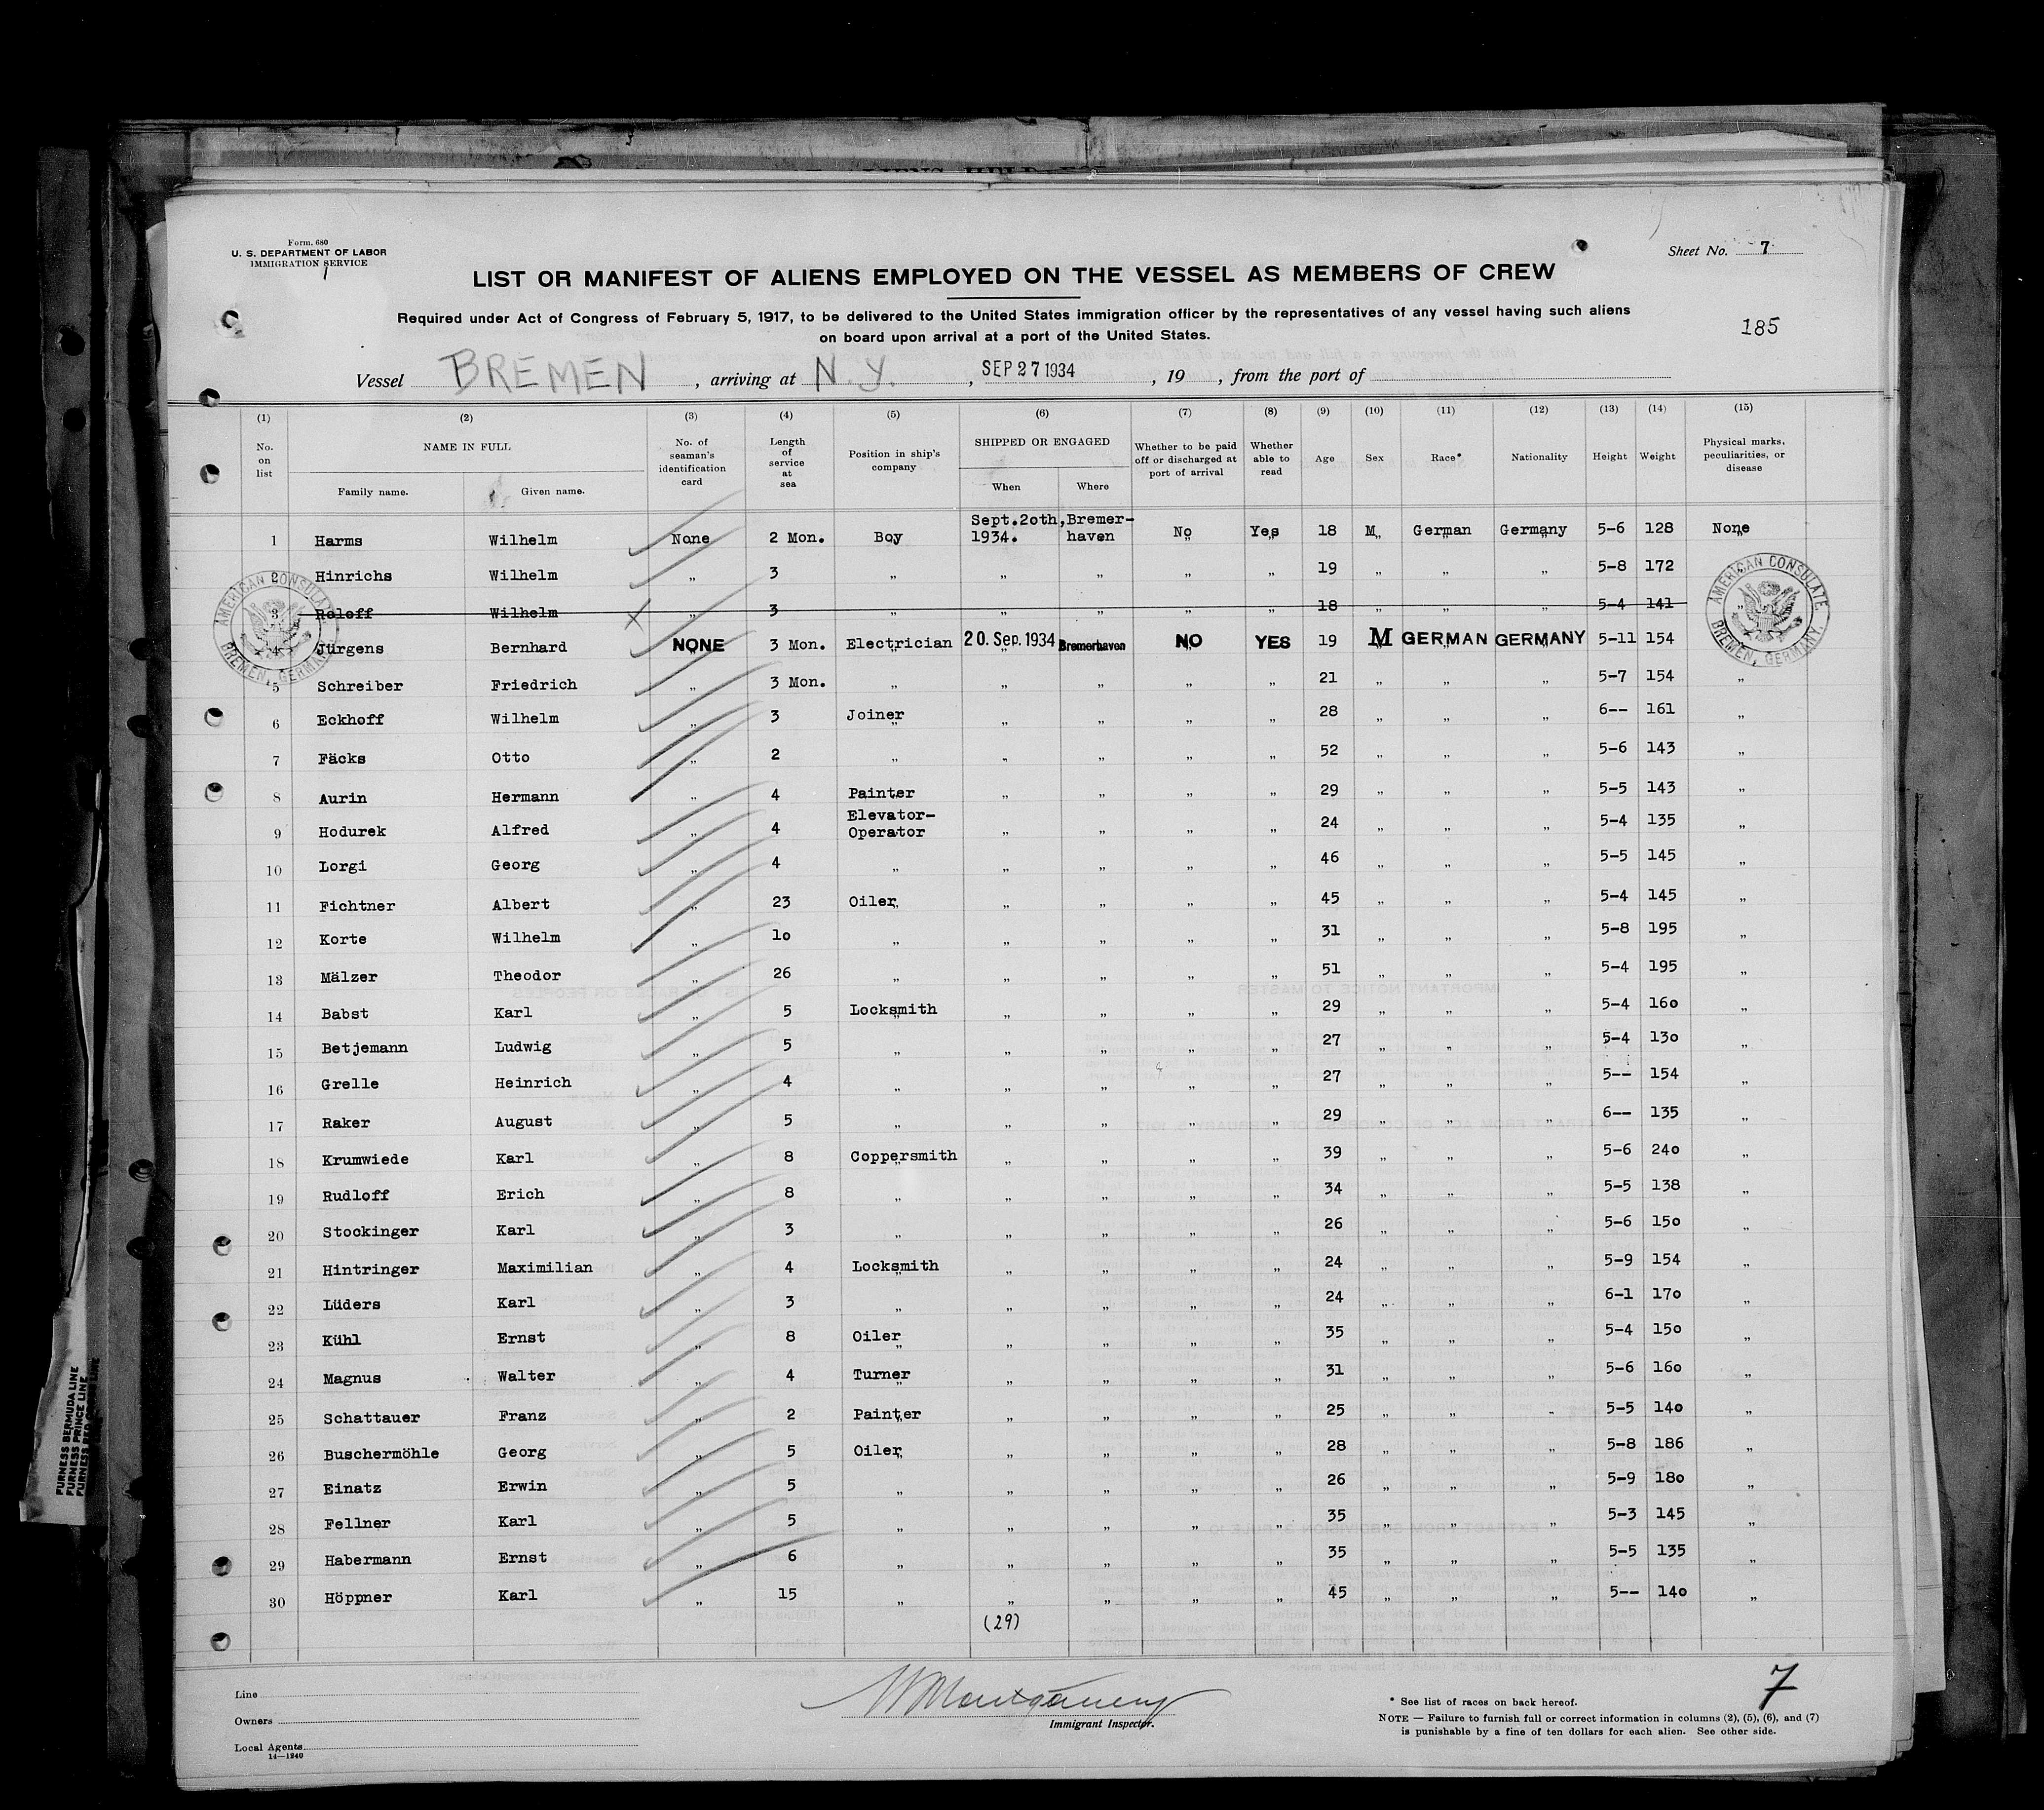 Form 680
U. S. DEPARTMENT OF LABOR
IMMIGRATION SERVICE
Sheet No. 7
LIST OR MANIFEST OF ALIENS EMPLOYED ON THE VESSEL AS MEMBERS OF CREW
Required under Act of Congress of February 5, 1917, to be delivered to the United States immigration officer by the representatives of any vessel having such aliens
on board upon arrival at a port of the United States.
185
Vessel BREMEN, arriving at N.Y., SEP 27 1934, 19 , from the port of
(1) (2) (3) (4) (5) (6) (7) (8) (9) (10) (11) (12) (13) (14) (15)
No. on list NAME IN FULL Family name. Given name. No. of seaman's identification card Length of service at sea Position in ship's company SHIPPED OR ENGAGED When Where Whether to be paid off or discharged at port of arrival Whether able to read Age Sex Race* Nationality Height Weight Physical marks, peculiarities, or disease
1 Harms Wilhelm None 2 Mon. Boy Sept.20th, 1934. Bremerhaven No Yes 18 M. German Germany 5-6 128 None
2 Hinrichs Wilhelm „ 3 „ „ „ „ „ 19 „ „ „ 5-8 172 „
3 Roloff Wilhelm „ 3 „ „ „ „ „ 18 „ „ „ 5-4 141 „
4 Jürgens Bernhard NONE 3 Mon. Electrician 20. Sep. 1934 Bremerhaven NO YES 19 M GERMAN GERMANY 5-11 154
5 Schreiber Friedrich „ 3 Mon. „ „ „ „ „ 21 „ „ „ 5-7 154 „
6 Eckhoff Wilhelm „ 3 Joiner „ „ „ „ 28 „ „ „ 6-- 161 „
7 Fäcks Otto „ 2 „ „ „ „ „ 52 „ „ „ 5-6 143 „
8 Aurin Hermann „ 4 Painter „ „ „ „ 29 „ „ „ 5-5 143 „
9 Hodurek Alfred „ 4 Elevator-Operator „ „ „ „ 24 „ „ „ 5-4 135 „
10 Lorgi Georg „ 4 „ „ „ „ „ 46 „ „ „ 5-5 145 „
11 Fichtner Albert „ 23 Oiler „ „ „ „ 45 „ „ „ 5-4 145 „
12 Korte Wilhelm „ 10 „ „ „ „ „ 31 „ „ „ 5-8 195 „
13 Mälzer Theodor „ 26 „ „ „ „ „ 51 „ „ „ 5-4 195 „
14 Babst Karl „ 5 Locksmith „ „ „ „ 29 „ „ „ 5-4 160 „
15 Betjemann Ludwig „ 5 „ „ „ „ „ 27 „ „ „ 5-4 130 „
16 Grelle Heinrich „ 4 „ „ „ „ „ 27 „ „ „ 5-- 154 „
17 Raker August „ 5 „ „ „ „ „ 29 „ „ „ 6-- 135 „
18 Krumwiede Karl „ 8 Coppersmith „ „ „ „ 39 „ „ „ 5-6 240 „
19 Rudloff Erich „ 8 „ „ „ „ „ 34 „ „ „ 5-5 138 „
20 Stockinger Karl „ 3 „ „ „ „ „ 26 „ „ „ 5-6 150 „
21 Hintringer Maximilian „ 4 Locksmith „ „ „ „ 24 „ „ „ 5-9 154 „
22 Lüders Karl „ 3 „ „ „ „ „ 24 „ „ „ 6-1 170 „
23 Kühl Ernst „ 8 Oiler „ „ „ „ 35 „ „ „ 5-4 150 „
24 Magnus Walter „ 4 Turner „ „ „ „ 31 „ „ „ 5-6 160 „
25 Schattauer Franz „ 2 Painter „ „ „ „ 25 „ „ „ 5-5 140 „
26 Buschermöhle Georg „ 5 Oiler „ „ „ „ 28 „ „ „ 5-8 186 „
27 Einatz Erwin „ 5 „ „ „ „ „ 26 „ „ „ 5-9 180 „
28 Fellner Karl „ 5 „ „ „ „ „ 35 „ „ „ 5-3 145 „
29 Habermann Ernst „ 6 „ „ „ „ „ 35 „ „ „ 5-5 135 „
30 Höppner Karl „ 15 „ „ „ „ „ 45 „ „ „ 5-- 140 „
(29)
AMERICAN CONSULATE BREMEN, GERMANY.
AMERICAN CONSULATE BREMEN, GERMANY.
FURNESS BERMUDA LINE
FURNESS PRINCE LINE
Line
Owners
Local Agents
14—1240
W Montgomery
Immigrant Inspector.
7
* See list of races on back hereof.
NOTE — Failure to furnish full or correct information in columns (2), (5), (6), and (7)
is punishable by a fine of ten dollars for each alien. See other side.